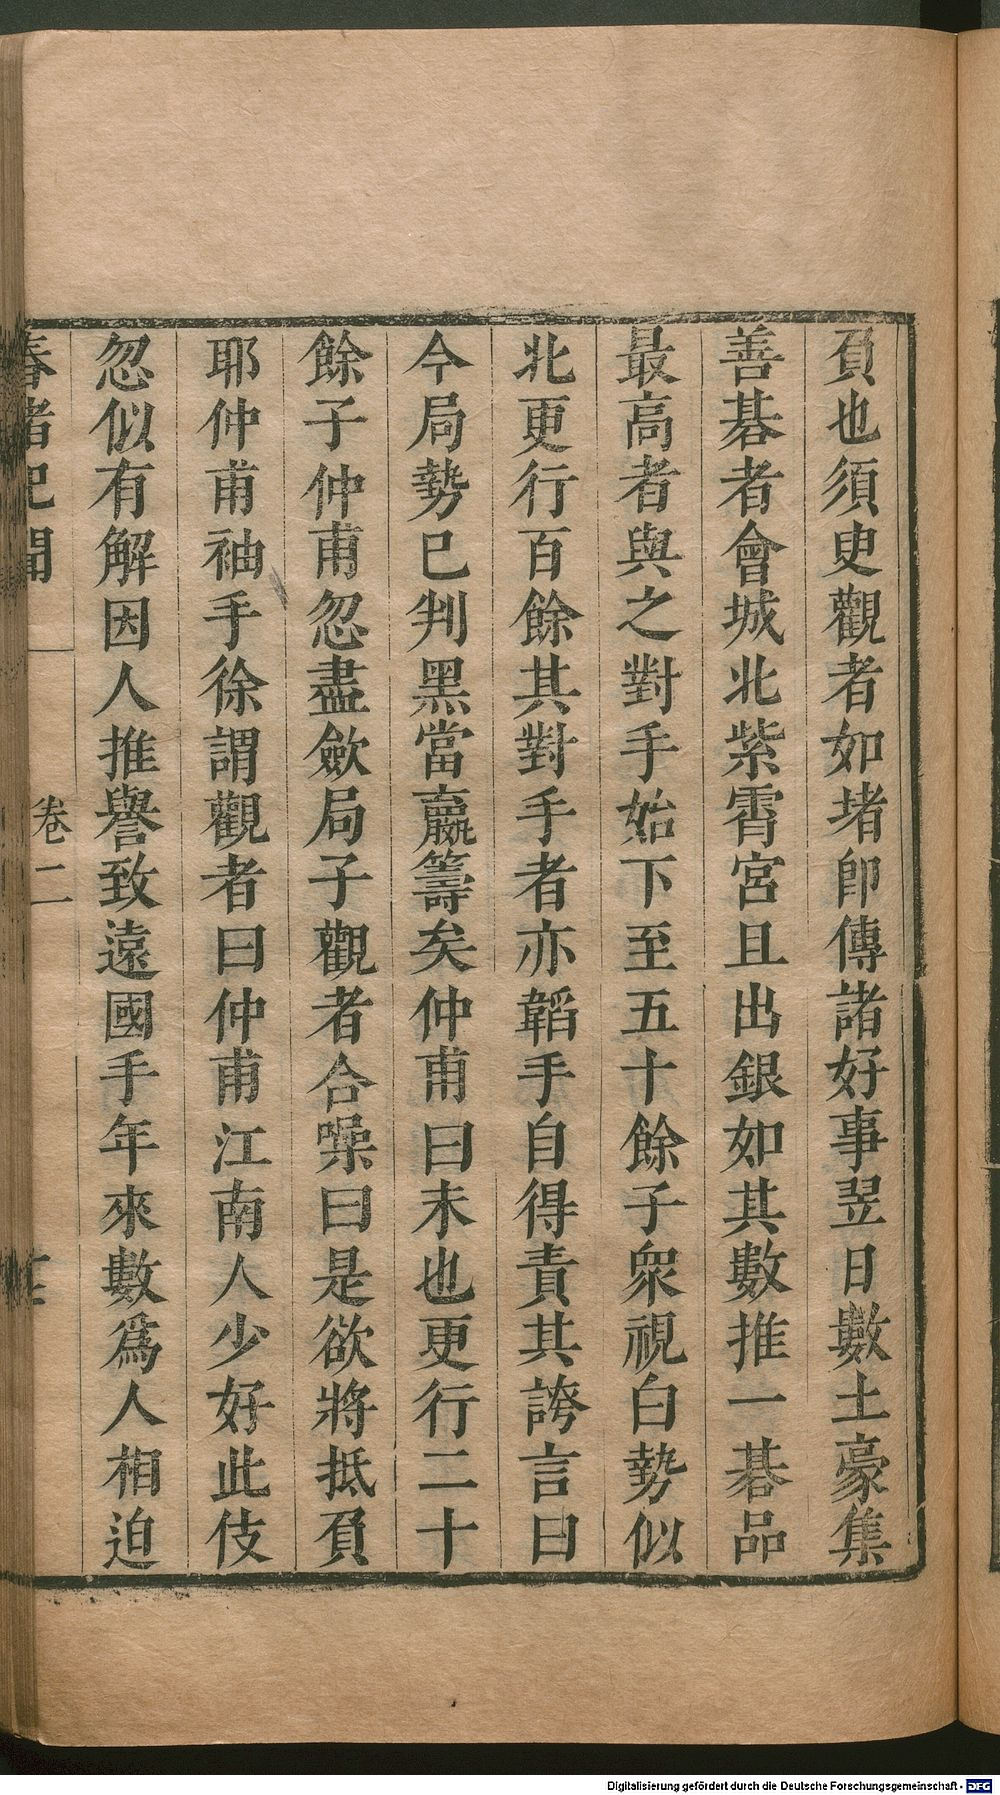 負也須臾觀者如堵卽傳諸好事翌日數土豪集
善碁者會城北紫霄宮且出銀如其數推一碁品
最高者與之對手始下至五十餘子衆視白勢似
北更行百餘其對手者亦韜手自得責其誇言曰
今局勢已判黑當贏籌矣仲甫曰未也更行二十
餘子仲甫忽盡斂局子觀者合噪曰是欲將抵負
耶仲甫袖手徐謂觀者曰仲甫江南人少好此伎
忽似有解因人推譽致遠國手年來數爲人相迫
春渚紀聞
卷二
Digitalisierung gefördert durch die Deutsche Forschungsgemeinschaft - DFG